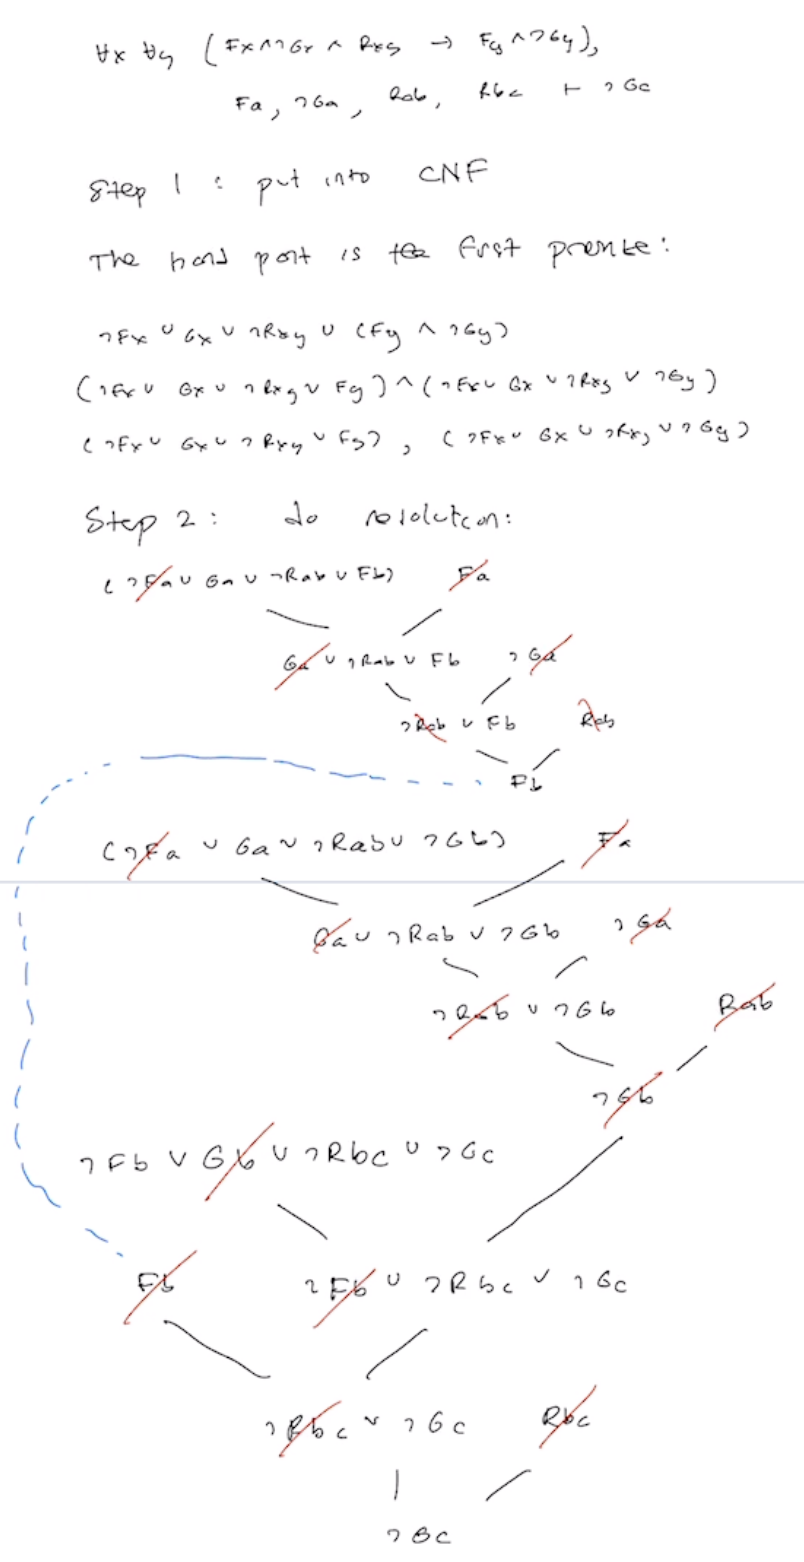 ∀x ∀y (Fx ∧ ¬Gx ∧ Rxy → Fy ∧ ¬Gy),
Fa, ¬Ga, Rab, Rbc ⊢ ¬Gc
Step 1 : put into CNF
The hard part is the first premise:
¬Fx ∪ Gx ∪ ¬Rxy ∪ (Fy ∧ ¬Gy)
(¬Fx ∪ Gx ∪ ¬Rxy ∪ Fy) ∧ (¬Fx ∪ Gx ∪ ¬Rxy ∪ ¬Gy)
(¬Fx ∪ Gx ∪ ¬Rxy ∪ Fy), (¬Fx ∪ Gx ∪ ¬Rxy ∪ ¬Gy)
Step 2 : do resolution:
(¬Fa ∪ Ga ∪ ¬Rab ∪ Fb) Fa
Ga ∪ ¬Rab ∪ Fb ¬Ga
¬Rab ∪ Fb Rab
Fb
(¬Fa ∪ Ga ∪ ¬Rab ∪ ¬Gb) Fa
Ga ∪ ¬Rab ∪ ¬Gb ¬Ga
¬Rab ∪ ¬Gb Rab
¬Gb
¬Fb ∨ Gb ∪ ¬Rbc ∪ ¬Gc
Fb ¬Fb ∪ ¬Rbc ∪ ¬Gc
¬Rbc ∨ ¬Gc Rbc
¬Gc